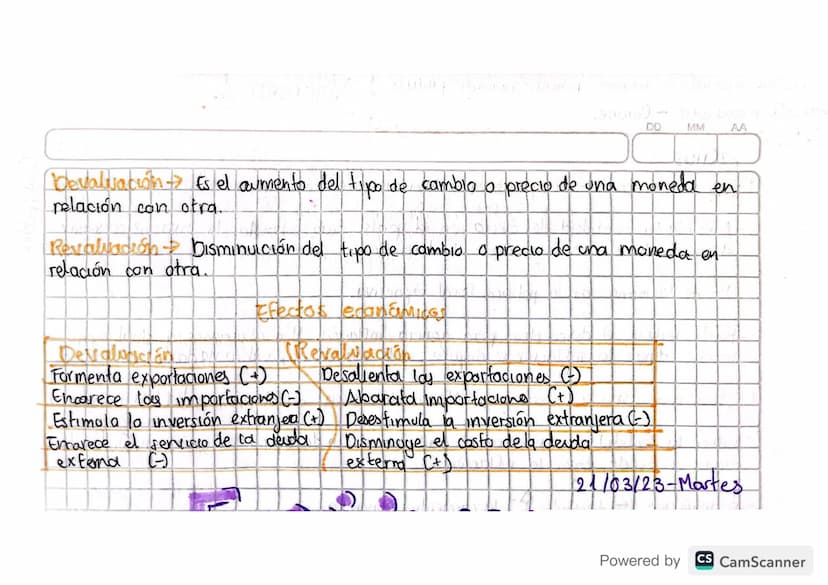 DD MM AA
Devaluación → Es el aumento del tipo de cambio o precio de una moneda en
relación con otra.
Revaluación → Disminuición del tipo de cambio o precio de una moneda en
relación con otra.
Efectos económicos
Devaluación Revaluación
Formenta exportaciones (+) Desalienta las exportaciones (-)
Encarece las importaciones (-) Abarata importaciones (+)
Estimula la inversión extranjea (+) Desestimula la inversión extranjera (-)
Encarece el servicio de la deuda Disminuye el costo de la deuda
externa (-) externa (+)
21/03/23-Martes
Powered by CS CamScanner